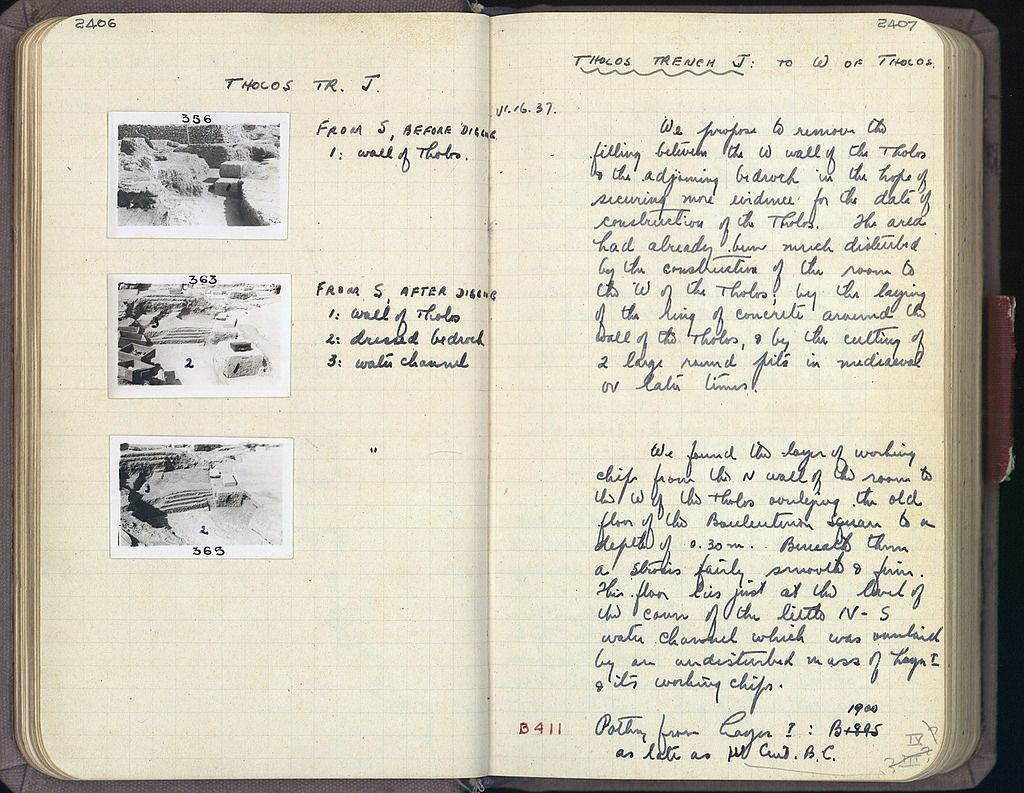 2406
THOLOS TR. J.
356
FROM S, BEFORE DIGGING
1: wall of Tholos.
363
FROM S, AFTER DIGGING
1: wall of Tholos
2: dressed bedrock
3: water channel
3
2
1
"
3
2
365
2407
THOLOS TRENCH J: TO W OF THOLOS.
VI.16.37.
We propose to remove the
filling between the W wall of the Tholos
& the adjoining bedrock in the hope of
securing more evidence for the date of
construction of the Tholos. The area
had already been much disturbed
by the construction of the room to
the W of the Tholos; by the laying
of the ring of concrete around the
wall of the Tholos, & by the cutting of
2 large round pits in mediaeval
or later times.
We found the layer of working
chips from the N wall of the room to
the W of the Tholos overlying the old
floor of the Bouleuterion Square to a
depth of 0.30 m. Beneath them
a strosis fairly smooth & firm.
This floor lies just at the level of
the cover of the little N-S
water channel which was overlaid
by an undisturbed mass of Layer I
& its working chips.
1900
B411
Pottery from Layer I: B
as late as Cent. B.C.
IV
III